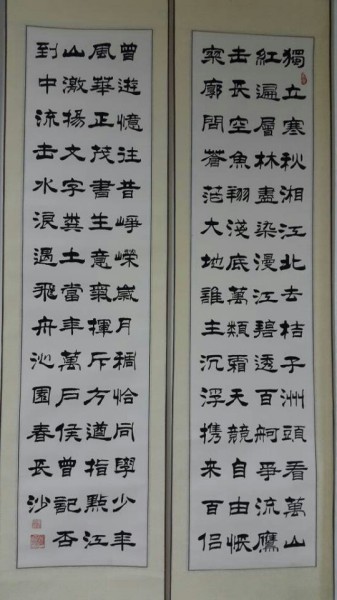 獨立寒秋湘江北去桔子洲頭看萬山
紅遍層林盡染漫江碧透百舸爭流鷹
击長空魚翔淺底萬類霜天競自由悵
寥廓問蒼茫大地誰主沉浮携来百侣
曾遊憶往昔崢嶸歲月稠恰同學少年
風華正茂書生意氣揮斥方遒指點江
山激揚文字糞土當年萬戶侯曾記否
到中流击水浪遏飛舟沁園春長沙